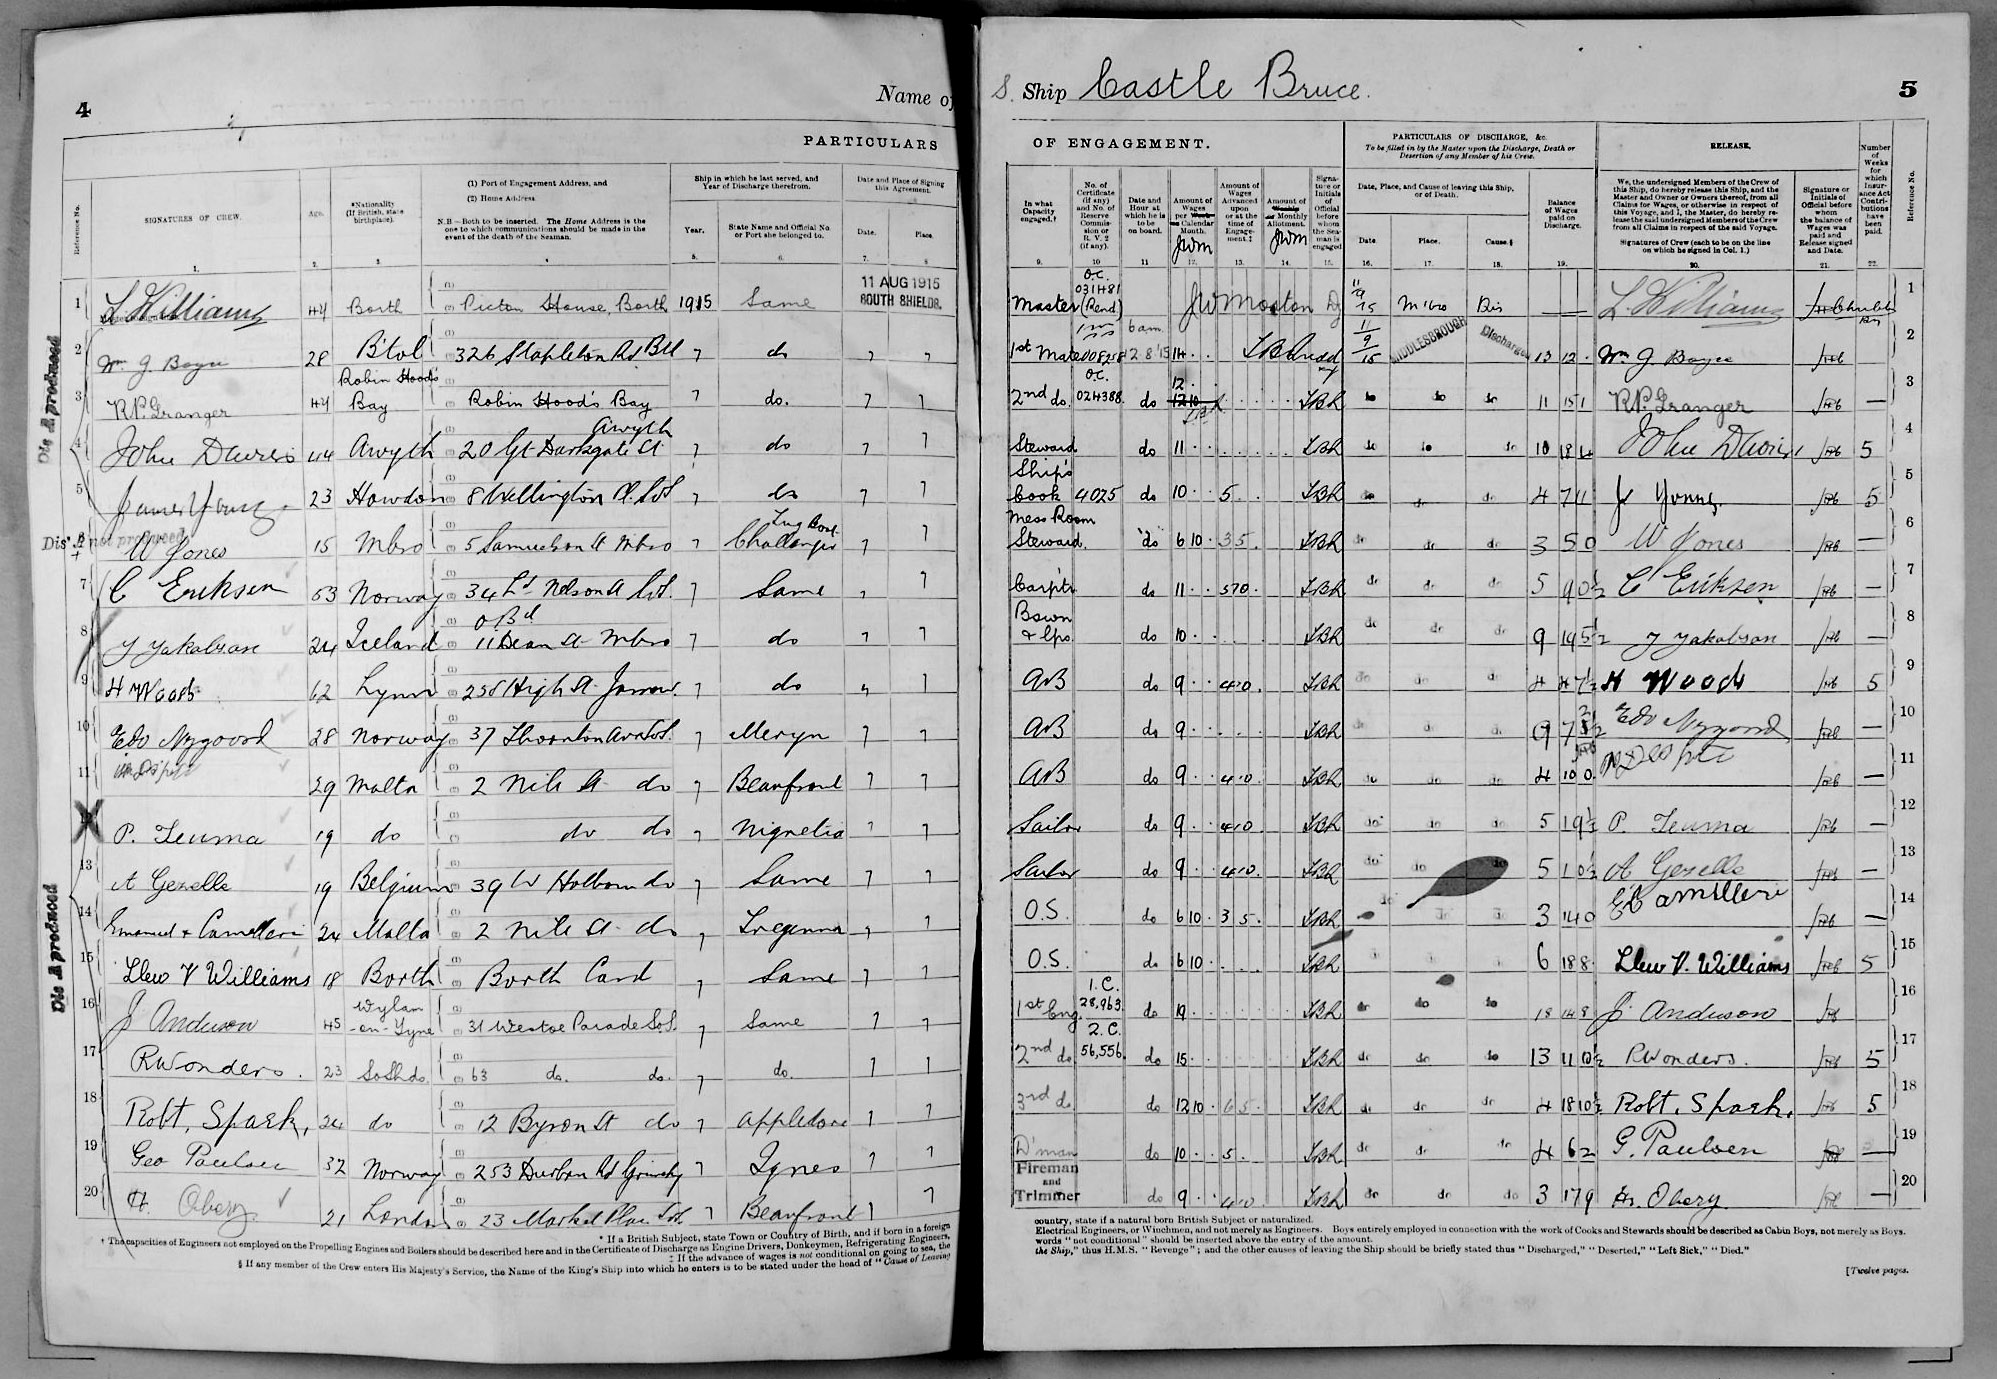 4
Name of
PARTICULARS
SIGNATURES OF CREW.
Age.
*Nationality
(If British, state
birthplace).
(1) Port of Engagement Address, and
(2) Home Address.
N.B.—Both to be inserted. The Home Address is the
one to which communications should be made in the
event of the death of the Seaman.
Ship in which he last served, and
Year of Discharge therefrom.
Year.
State Name and Official No.
or Port she belonged to.
Date and Place of Signing
this Agreement.
Date.
Place.
Reference No.
1 L Williams 44 Borth Picton House, Borth 1915 Same 11 AUG 1915 SOUTH SHIELDS.
2 Wm G Boyce 28 B'tol 326 Stapleton Rd Btl " do " "
3 R.P. Granger 44 Robin Hood's Bay Robin Hood's Bay " do. " "
4 John Davies 44 Awyth 20 Gt Darkgate St Awyth " do " "
5 James Young 23 Howdon 8 Wellington St. " do " "
Dis. A not produced
6 W Jones 15 Mbro 5 Samuelson St Mbro " Tug Boat Challenger " "
7 C Eriksen 53 Norway 34 Ld Nelson St " Same " "
8 J Jakobson 24 Iceland 11 Dean St Mbro " do " "
9 H Woods 62 Lynn 258 High St Jarrow " do " "
10 Edv Nygoord 28 Norway 37 Thornton Av " Meryn " "
11 29 Malta 2 Nile St do " Beaufront " "
12 P. Teuma 19 do do do " Nignetia " "
13 A Gezelle 19 Belgium 39 W Holborn do " Same " "
14 Emanuel Camilleri 24 Malta 2 Nile St do " "
15 Llew V Williams 18 Borth Borth Card " Same " "
16 J Anderson 45 Wylam-on-Tyne 31 Westoe Parade So.S. " Same " "
17 R Wonders. 23 So Shds 63 do. do. " do. " "
18 Robt. Spark. 24 do 12 Byron St do " Appledore " "
19 Geo Paulsen 32 Norway 253 Durban Rd Grimsby " Ignes " "
20 H. Obery. 21 London 23 Market Place " Beaufront " "
Dis A produced
Dis A produced
* If a British Subject, state Town or Country of Birth, and if born in a foreign
† The capacities of Engineers not employed on the Propelling Engines and Boilers should be described here and in the Certificate of Discharge as Engine Drivers, Donkeymen, Refrigerating Engineers,
‡ If the advance of wages is not conditional on going to sea, the
§ If any member of the Crew enters His Majesty's Service, the Name of the King's Ship into which he enters is to be stated under the head of "Cause of Leaving
S. Ship Castle Bruce.
5
OF ENGAGEMENT.
PARTICULARS OF DISCHARGE, &c.
To be filled in by the Master upon the Discharge, Death or
Desertion of any Member of his Crew.
RELEASE.
Number
of
Weeks
for
which
Insurance Act
Contributions
have
been
paid.
Reference No.
In what
Capacity
engaged.†
No. of
Certificate
(if any)
and No. of
Reserve
Commission
or
R. V. 2
(if any).
Date and
Hour at
which he is
to be
on board.
Amount of
Wages
per Week
or Calendar
Month.
JWM
Amount of
Wages
Advanced
upon
or at the
time of
Engagement.‡
Amount of
Weekly
or Monthly
Allotment.
JWM
Signature or
Initials
of
Official
before
whom
the Seaman is
engaged
Date, Place, and Cause of leaving this Ship,
or of Death.
Date.
Place.
Cause.§
Balance
of Wages
paid on
Discharge.
We, the undersigned Members of the Crew of
this Ship, do hereby release this Ship, and the
Master and Owner or Owners thereof, from all
Claims for Wages, or otherwise in respect of
this Voyage, and I, the Master, do hereby release
the said undersigned Members of the Crew
from all Claims in respect of the said Voyage.
Signatures of Crew (each to be on the line
on which he signed in Col. 1.)
Signature or
Initials of
Official before
whom
the balance of
Wages was
paid and
Release signed
and Date.
Master O.C. 031481 (Rend) JW Moaton 11/9/15 M'bro Dis — L Williams 1
1st Mate 008258 6 am 12.8.15 14 11/9/15 MIDDLESBROUGH Discharged 13 12 Wm G. Boyce 2
2nd do. O.C. 024388 do 12 do do do 11 15 1 R.P. Granger — 3
Steward do 11 do do do 10 18 4 John Davies 5 4
Ship's Cook 4025 do 10 5 do do do 4 7 11 J Young 5 5
Mess Room Steward. do 6 10 3 5 do do do 3 5 0 W Jones — 6
Carptr do 11 5 10 do do do 5 9 0½ C Eriksen — 7
Boswn & Lps do 10 do do do 9 19 5½ J Jakobson — 8
AB do 9 4 10 do do do 4 4 7½ H Woods 5 9
AB do 9 do do do 9 7 Edv Nygoord — 10
AB do 9 4 10 do do do 4 10 0 — 11
Sailor do 9 4 10 do do do 5 1 9½ P. Teuma — 12
Sailor do 9 4 10 do do do 5 1 0½ A Gezelle — 13
O.S. do 6 10 3 5 do do do 3 14 0 E Camilleri — 14
O.S. do 6 10 6 18 8 Llew V. Williams 5 15
1st Eng. 1.C. 28,963 do 19 do do do 18 14 8 J Anderson 16
2nd do. 2.C. 56,556. do 15 do do do 13 11 0½ R Wonders. 5 17
3rd do. do 12 10 6 5 do do do 4 18 10½ Robt. Spark. 5 18
D'man do 10 5 do do do 4 6 2 G. Paulsen — 19
Fireman and Trimmer do 9 4 10 do do do 3 17 9 H. Obery — 20
country, state if a natural born British Subject or naturalized.
Electrical Engineers, or Winchmen, and not merely as Engineers. Boys entirely employed in connection with the work of Cooks and Stewards should be described as Cabin Boys, not merely as Boys.
words "not conditional" should be inserted above the entry of the amount.
the Ship," thus H.M.S. "Revenge"; and the other causes of leaving the Ship should be briefly stated thus "Discharged," "Deserted," "Left Sick," "Died."
[Twelve pages.